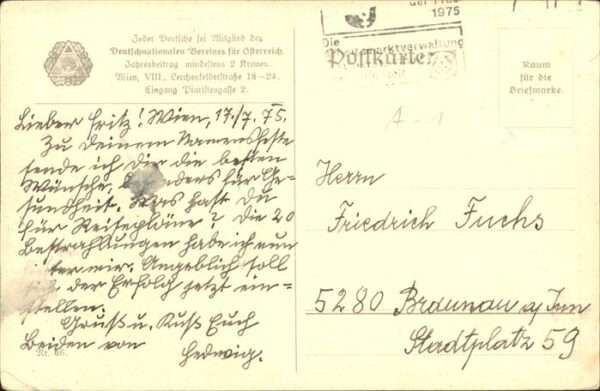 Jeder Deutsche sei Mitglied des
Deutschnationalen Vereines für Österreich.
Jahresbeitrag mindestens 2 Kronen.
Wien, VIII., Lerchenfelderstraße 18–24,
Eingang Piaristengasse 2.
der Frau
1975
Die
marktverwaltung
Postkarte
Raum
für die
Briefmarke.
A-1
Lieber Fritz! Wien, 17./7. 75.
Zu Deinem Namensfeste
sende ich Dir die besten
Wünsche, besonders für Ge-
sundheit. Was hast Du
für Reisepläne? Die 20
Bestrahlungen habe ich nun
hinter mir. Angeblich soll
der Erfolg jetzt ein-
stellen.
Gruß u. Kuß Euch
Beiden von Hedwig.
Nr. 66.
Herrn
Friedrich Fuchs
5280 Braunau a/Inn
Stadtplatz 59